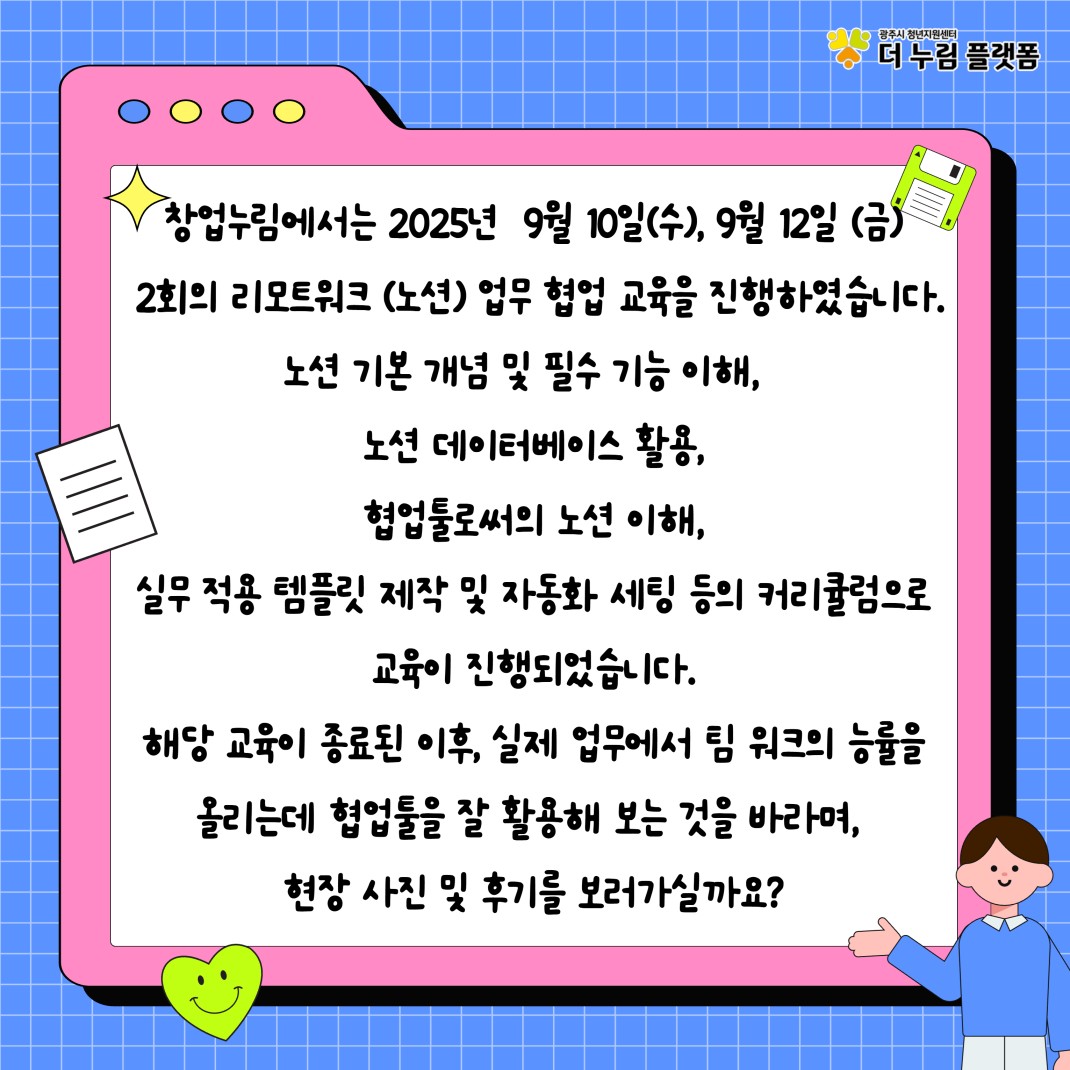 광주시 청년지원센터
더 누림 플랫폼
창업누림에서는 2025년 9월 10일(수), 9월 12일 (금)
2회의 리모트워크 (노션) 업무 협업 교육을 진행하였습니다.
노션 기본 개념 및 필수 기능 이해,
노션 데이터베이스 활용,
협업툴로써의 노션 이해,
실무 적용 템플릿 제작 및 자동화 세팅 등의 커리큘럼으로
교육이 진행되었습니다.
해당 교육이 종료된 이후, 실제 업무에서 팀 워크의 능률을
올리는데 협업툴을 잘 활용해 보는 것을 바라며,
현장 사진 및 후기를 보러가실까요?